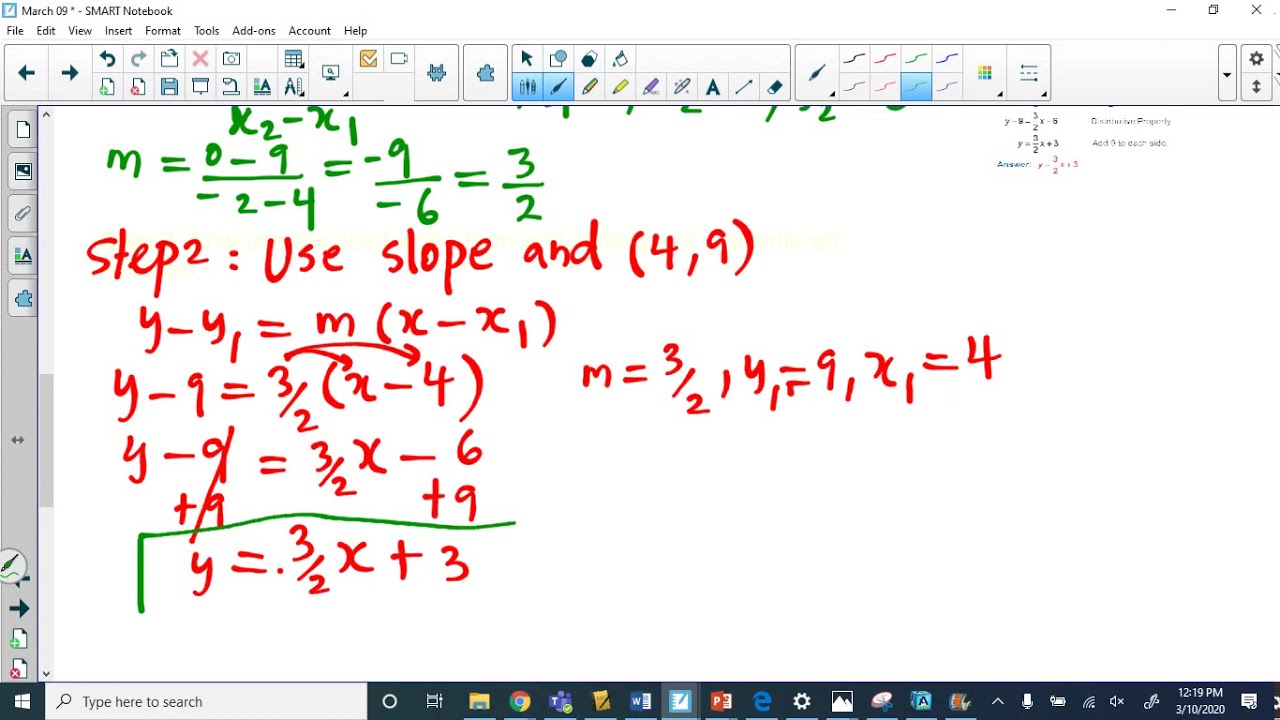 March 09 * - SMART Notebook
File Edit View Insert Format Tools Add-ons Account Help
x₂ - x₁
m = 0 - 9 / -2 - 4 = -9 / -6 = 3 / 2
y - 9 = 3/2 x - 6 Distributive Property
y = 3/2 x + 3 Add 9 to each side.
Answer: y = 3/2 x + 3
Step2 : Use slope and (4, 9)
y - y₁ = m (x - x₁)
y - 9 = 3/2 (x - 4) m = 3/2 , y₁ = 9, x₁ = 4
y - 9 = 3/2 x - 6
+9 +9
y = . 3/2 x + 3
Type here to search
12:19 PM
3/10/2020